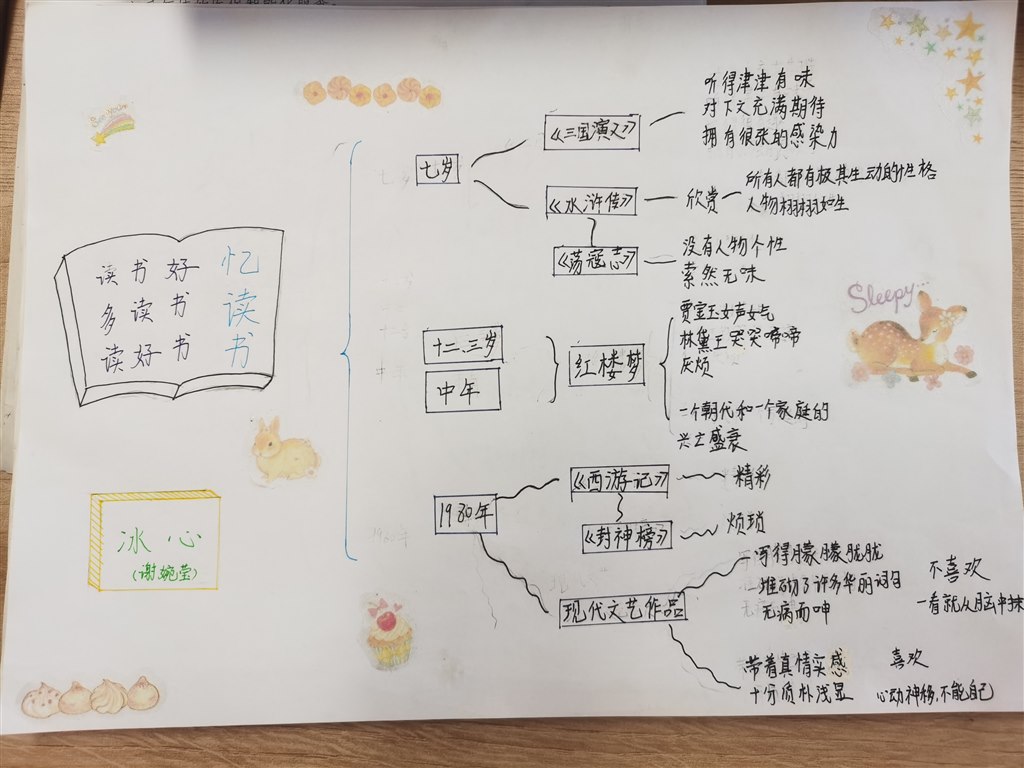 读书好
多读书
读好书
忆读书
冰心
(谢婉莹)
七岁
《三国演义》
听得津津有味
对下文充满期待
拥有很张的感染力
《水浒传》
欣赏
所有人都有极其生动的性格
人物栩栩如生
《荡寇志》
没有人物个性
索然无味
十二、三岁
中年
红楼梦
贾宝玉女声女气
林黛玉哭哭啼啼
厌烦
一个朝代和一个家庭的
兴亡盛衰
1980年
《西游记》
精彩
《封神榜》
烦琐
现代文艺作品
写得朦朦胧胧
堆砌了许多华丽词句
无病而呻
不喜欢
一看就从脑中抹
带着真情实感
十分质朴浅显
喜欢
心动神移,不能自己
Sleepy...